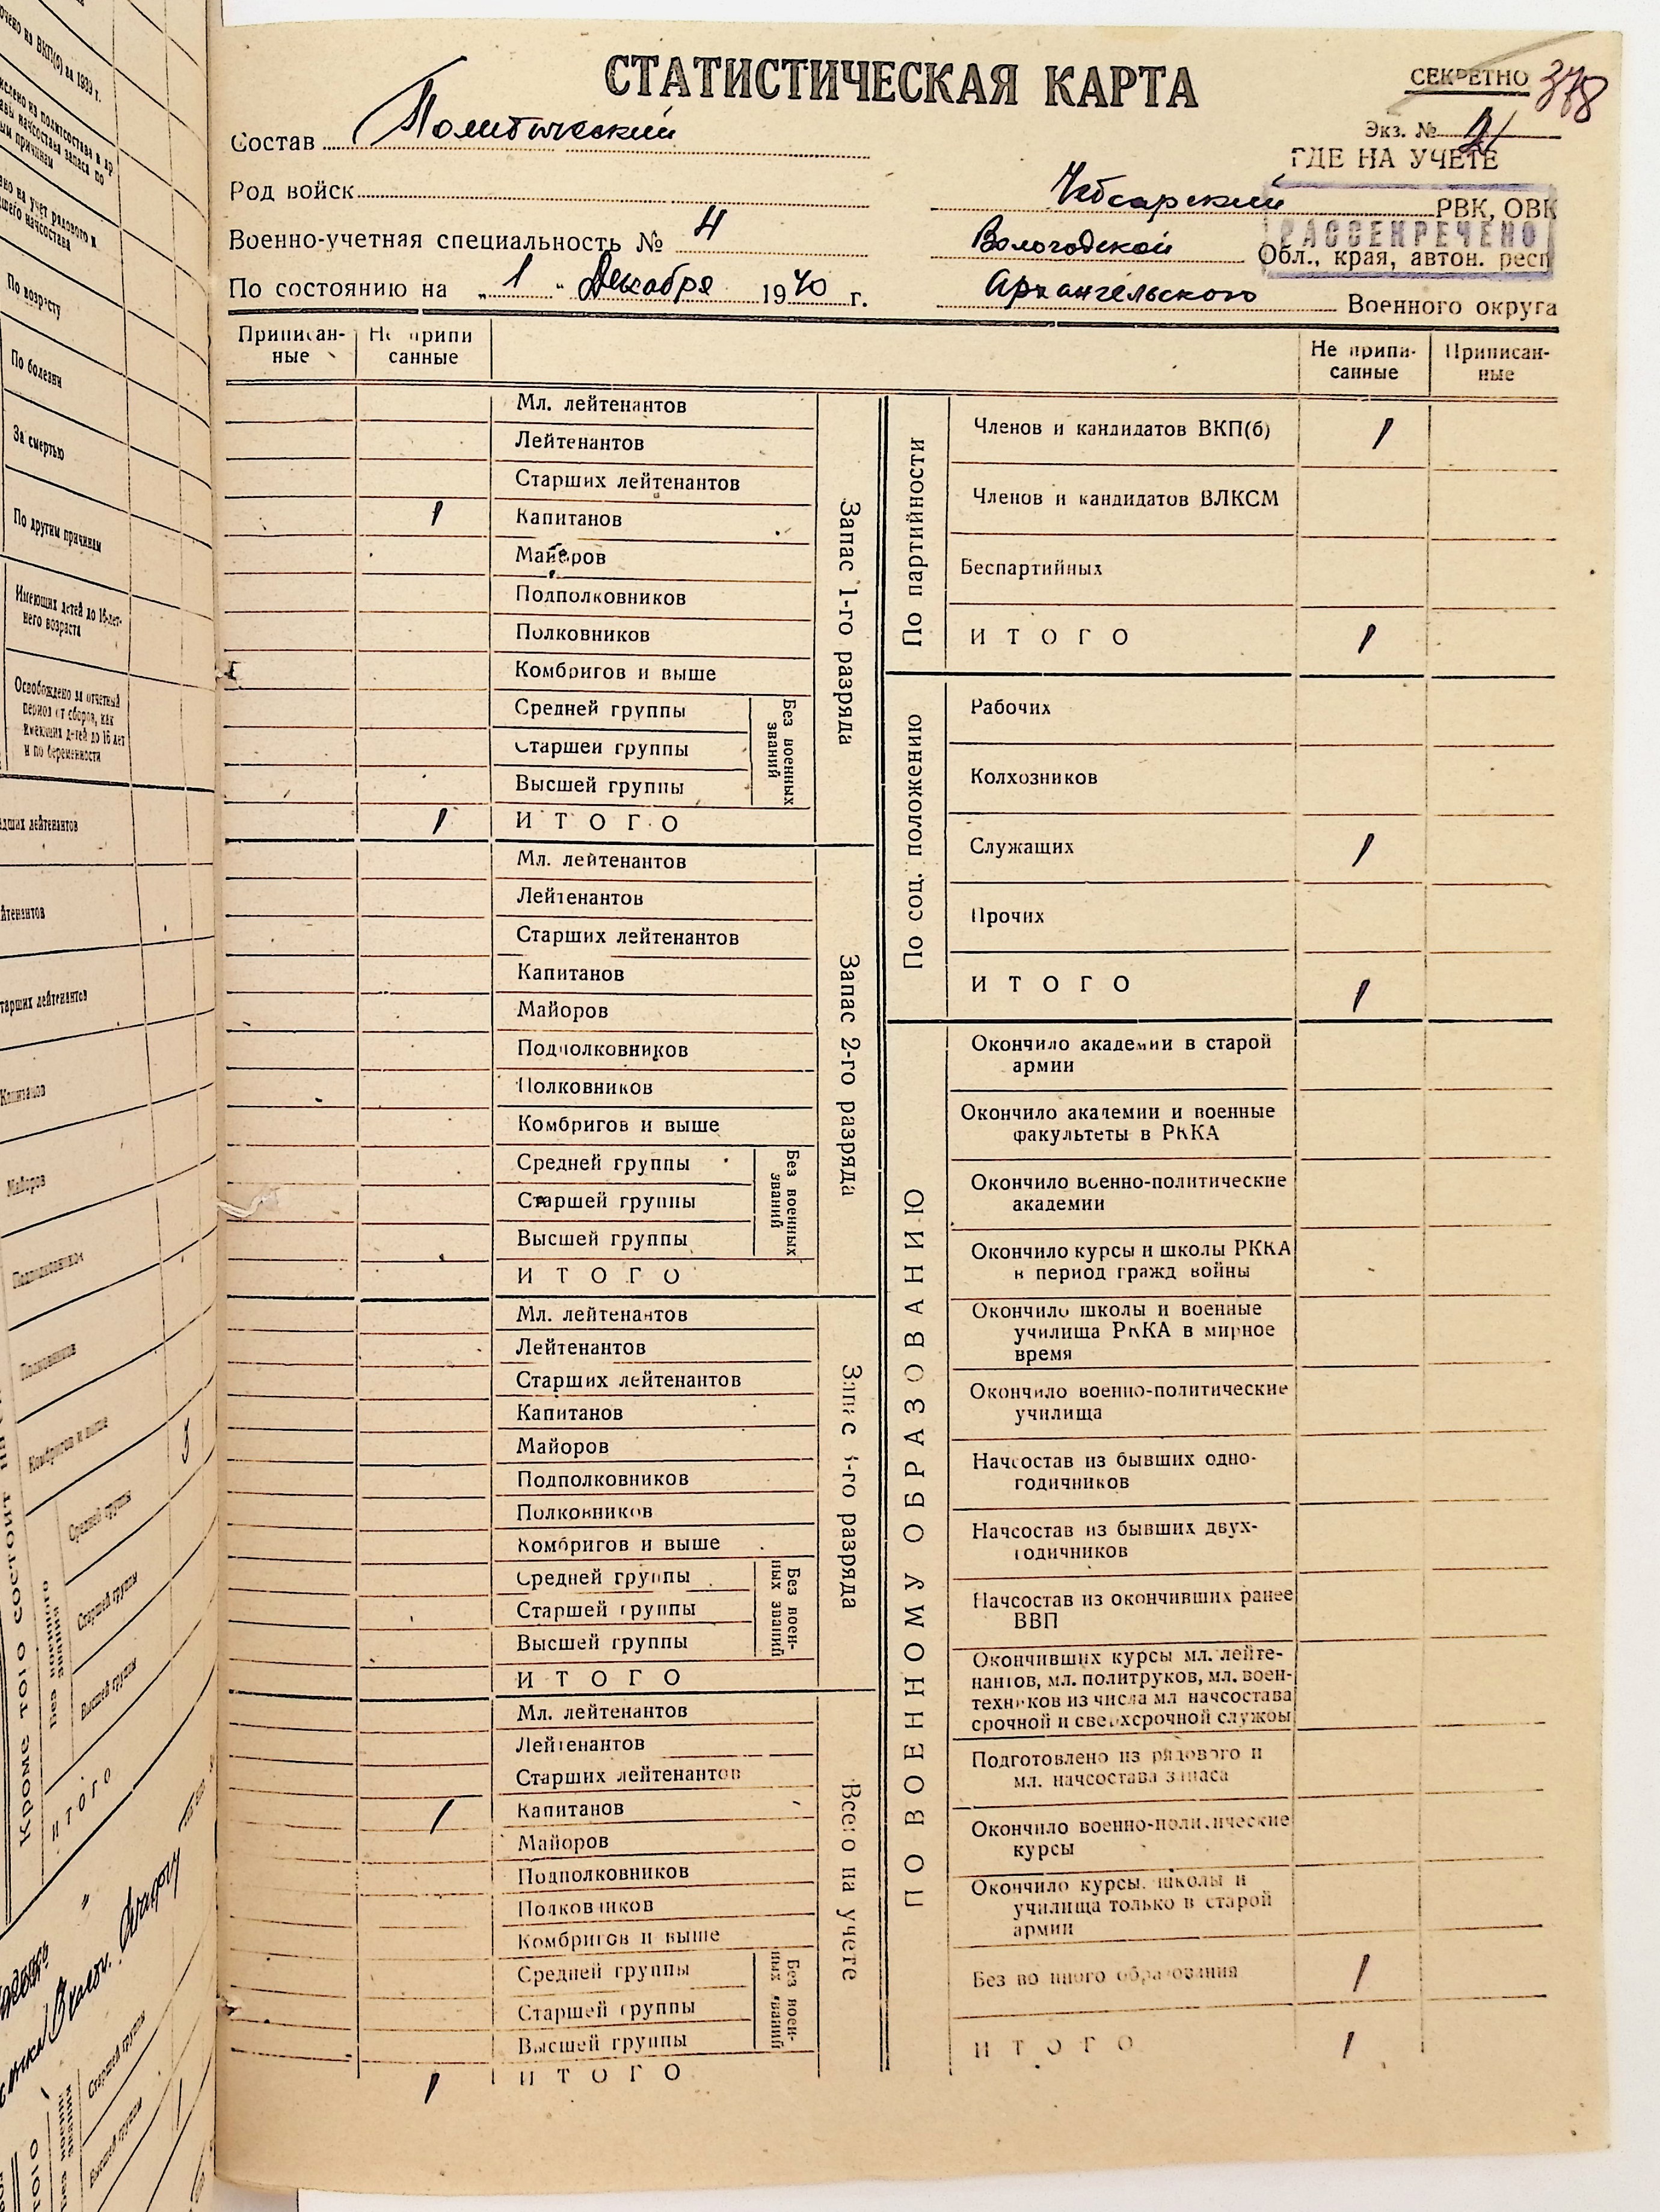 СТАТИСТИЧЕСКАЯ КАРТА
СЕКРЕТНО
378
Экз. №
ГДЕ НА УЧЕТЕ
Состав Политический
Род войск
Военно-учетная специальность № 4
По состоянию на „1" Декабря 1940 г.
Чебсарский РВК, ОВК
РАССЕКРЕЧЕНО
Вологодской Обл., края, автон. респ
Архангельского Военного округа
Приписан-
ные
Не припи
санные
Не припи-
санные
Приписан-
ные
Запас 1-го разряда
Мл. лейтенантов
Лейтенантов
Старших лейтенантов
1 Капитанов
Майоров
Подполковников
Полковников
Комбригов и выше
Без военных званий
Средней группы
Старшей группы
Высшей группы
1 ИТОГО
Запас 2-го разряда
Мл. лейтенантов
Лейтенантов
Старших лейтенантов
Капитанов
Майоров
Подполковников
Полковников
Комбригов и выше
Без военных званий
Средней группы
Старшей группы
Высшей группы
ИТОГО
Запас 3-го разряда
Мл. лейтенантов
Лейтенантов
Старших лейтенантов
Капитанов
Майоров
Подполковников
Полковников
Комбригов и выше
Без воен-
ных званий
Средней группы
Старшей группы
Высшей группы
ИТОГО
Всего на учете
Мл. лейтенантов
Лейтенантов
Старших лейтенантов
1 Капитанов
Майоров
Подполковников
Полковников
Комбригов и выше
Без воен-
ных званий
Средней группы
Старшей группы
Высшей группы
1 ИТОГО
По партийности
Членов и кандидатов ВКП(б) 1
Членов и кандидатов ВЛКСМ
Беспартийных
ИТОГО 1
По соц. положению
Рабочих
Колхозников
Служащих 1
Прочих
ИТОГО 1
ПО ВОЕННОМУ ОБРАЗОВАНИЮ
Окончило академии в старой
армии
Окончило академии и военные
факультеты в РККА
Окончило военно-политические
академии
Окончило курсы и школы РККА
в период гражд войны
Окончило школы и военные
училища РККА в мирное
время
Окончило военно-политические
училища
Начсостав из бывших одно-
годичников
Начсостав из бывших двух-
годичников
Начсостав из окончивших ранее
ВВП
Окончивших курсы мл. лейте-
нантов, мл. политруков, мл. воен-
техников из числа мл начсостава
срочной и сверхсрочной службы
Подготовлено из рядового и
мл. начсостава запаса
Окончило военно-политические
курсы
Окончило курсы, школы и
училища только в старой
армии
Без военного образования 1
ИТОГО 1
По возрасту
По болезни
За смертью
По другим причинам
Имеющих детей до 16-лет-
него возраста
Освобождено за отчетный
период от сборов, как
имеющих детей до 16 лет
и по беременности
Капитанов
Майоров
Подполковников
Полковников
Комбригов и выше
Средней группы
Старшей группы
Высшей группы
ИТОГО
Кроме того состоит
Без военного
звания
Старшей группы
Высшей группы